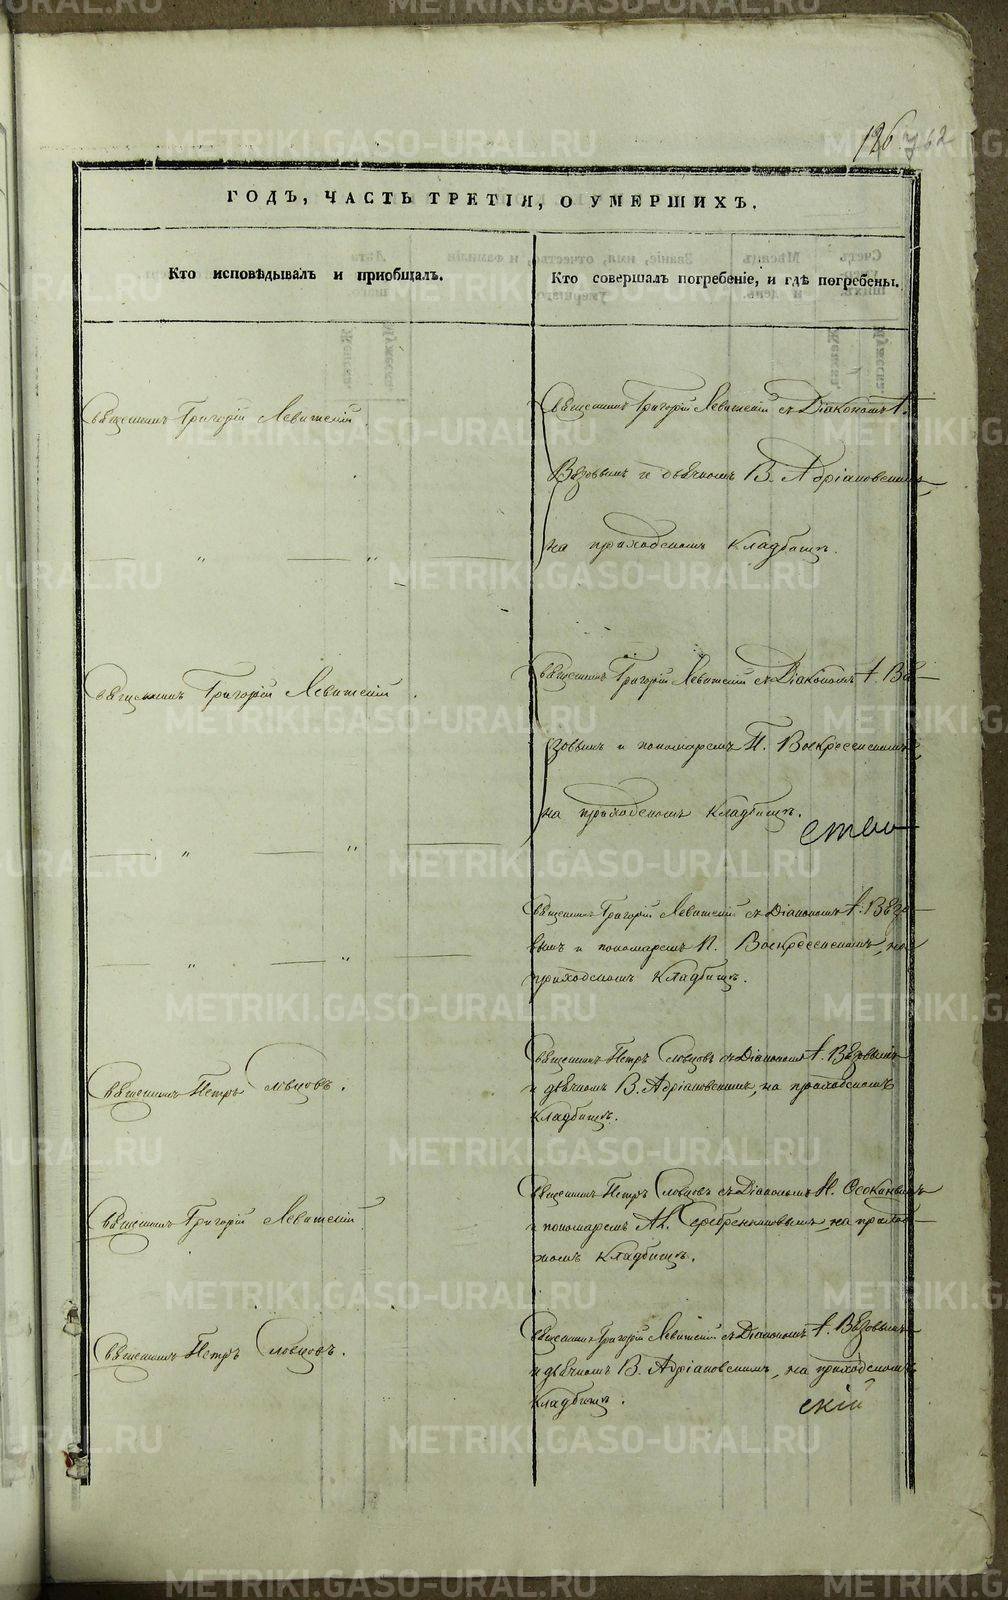 126 762
ГОДЪ, ЧАСТЬ ТРЕТІЯ, О УМЕРШИХЪ.
Кто исповѣдывалъ и пріобщалъ.
Кто совершалъ погребеніе, и гдѣ погребены.
Священникъ Григорій Левитскій
Священникъ Григорій Левитскій съ Діакономъ А.
Вязовымъ и дьячкомъ В. Адріановскимъ,
на приходскомъ кладбищѣ.
— " — " —
Священникъ Григорій Левитскій.
Священникъ Григорій Левитскій съ Діакономъ А. Вя-
зовымъ и пономаремъ П. Воскресенскимъ,
на приходскомъ кладбищѣ.
— " — " —
Священникъ Григорій Левитскій съ Діакономъ А. Вязо-
вымъ и пономаремъ П. Воскресенскимъ, на
приходскомъ кладбищѣ.
— " — " —
Священникъ Петръ Словцовъ.
Священникъ Петръ Словцовъ съ Діакономъ А. Вязовымъ
и дьячкомъ В. Адріановскимъ, на приходскомъ
кладбищѣ.
Священникъ Григорій Левитскій
Священникъ Петръ Словцовъ съ Діакономъ Н.
и пономаремъ Ал. Серебренниковымъ, на приход-
скомъ кладбищѣ.
Священникъ Петръ Словцовъ.
Священникъ Григорій Левитскій съ Діакономъ А. Вязовымъ
и дьячкомъ В. Адріановскимъ, на приходскомъ
кладбищѣ.
скій
METRIKI.GASO-URAL.RU